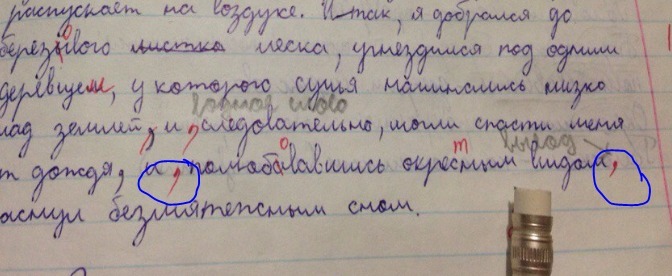 распускает на воздухе. Итак, я добрался до
березового листка леска, угнездился под одним
деревцем, у которого сучья начинались низко
вводное слово
над землей, и, следовательно, могли спасти меня
от дождя, и, полюбовавшись окрестным видом,
заснул безмятежным сном.